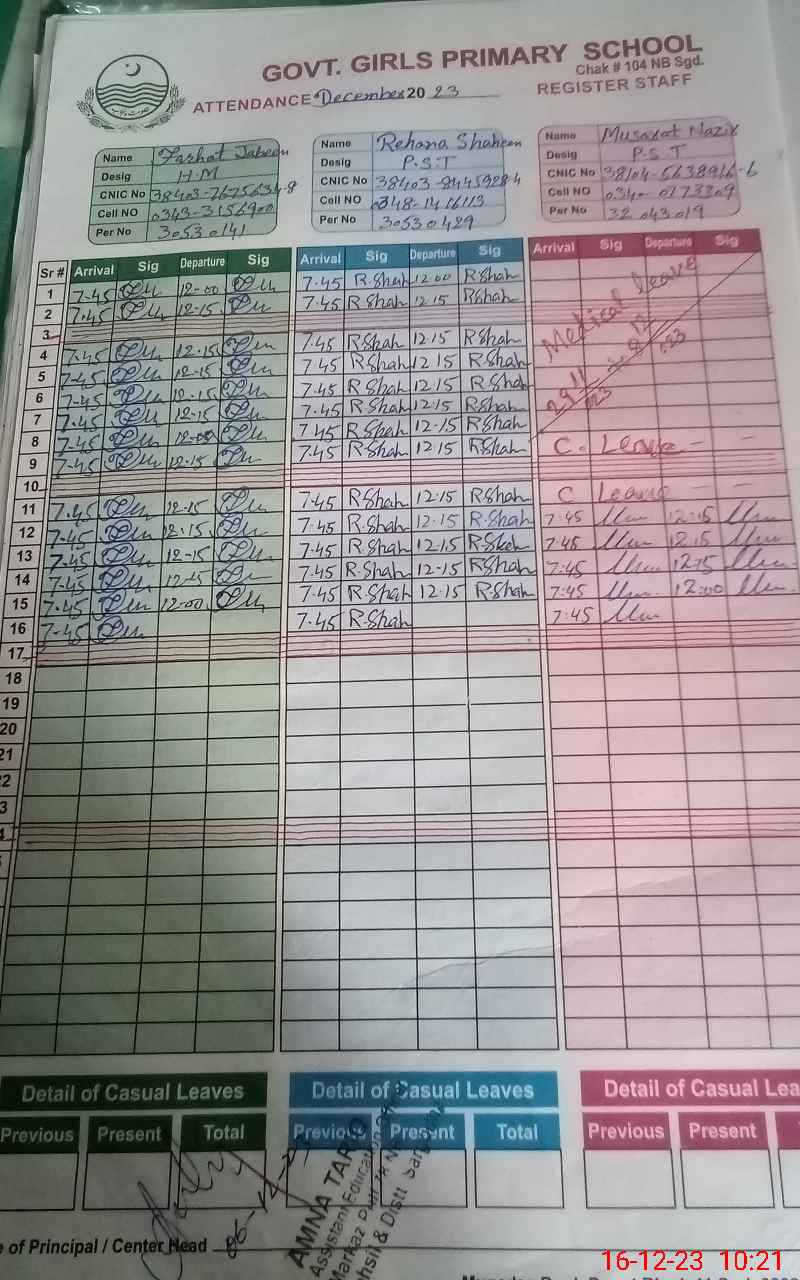 GOVT. GIRLS PRIMARY SCHOOL
Chak # 104 NB Sgd.
ATTENDANCE December 2023
REGISTER STAFF
Name Farhat Jabeen
Desig H.M
CNIC No 38403-7675634-8
Cell NO 0343-3156900
Per No 30530141
Name Rehana Shaheen
Desig P.S.T
CNIC No
Cell NO 0348-1416113
Per No 30530429
Name Musarat Nazir
Desig P.S.T
CNIC No 38104-5638916-6
Cell NO 0340-0173309
Per No 32043019
Sr # Arrival Sig Departure Sig Arrival Sig Departure Sig Arrival Sig Departure Sig
1 7-45 12-00 7.45 R.Shah 12.00 RShah
2 7.45 12-15 7.45 RShah 12.15 RShah
Medical leave
3
4 7-45 12.15 7.45 RShah 12.15 RShah
5 7-45 12-15 7.45 RShah 12.15 RShah
6 7-45 12-15 7.45 RShah 12.15 RShah
7 7.45 12-15 7.45 RShah 12.15 RShah
8 7-45 12-00 7.45 RShah 12.15 RShah
9 7-45 12-15 7.45 RShah 12.15 RShah C. Leave - -
10
11 7.45 12-15 7.45 RShah 12.15 RShah C Leave - -
12 7-45 12.15 7.45 RShah 12.15 R.Shah 7:45 12:15
13 7-45 12-15 7.45 RShah 12.15 7:45 12.15
14 7-45 12.15 7.45 R.Shah 12.15 RShah 7:45 12:15
15 7.45 12.00 7.45 R.Shah 12.15 RShah 7:45 12:00
16 7-45 7.45 R.Shah 7:45
17
18
19
20
21
2
3
4
Detail of Casual Leaves Detail of Casual Leaves Detail of Casual Lea
Previous Present Total Previous Present Total Previous Present
AMNA TARIQ
Assistant Education
Markaz
hsil & Distt Sargodha
e of Principal / Center Head
16-12-23 10:21